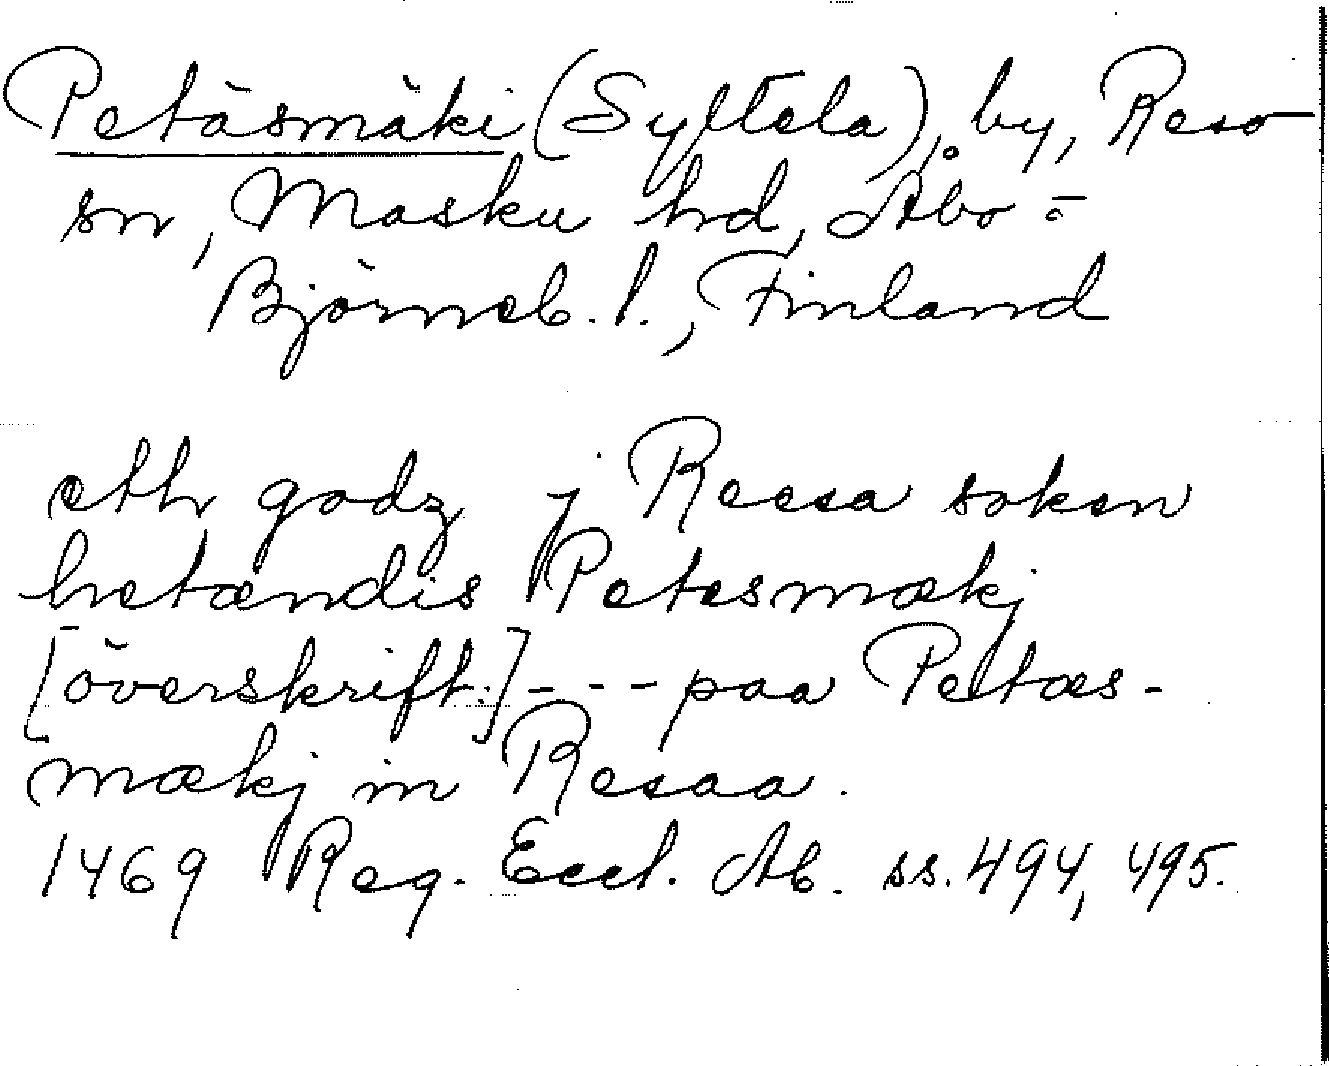 Petäsmäki (Syltela), by, Reso
sn, Masku hd, Åbo-
Björneb. l., Finland
eth godz j Reesa soken
hetændis Petesmækj
[överskrift:] - - - paa Petæs-
mækj in Resaa.
1469 Reg. Eccl. Ab. ss. 494, 495.